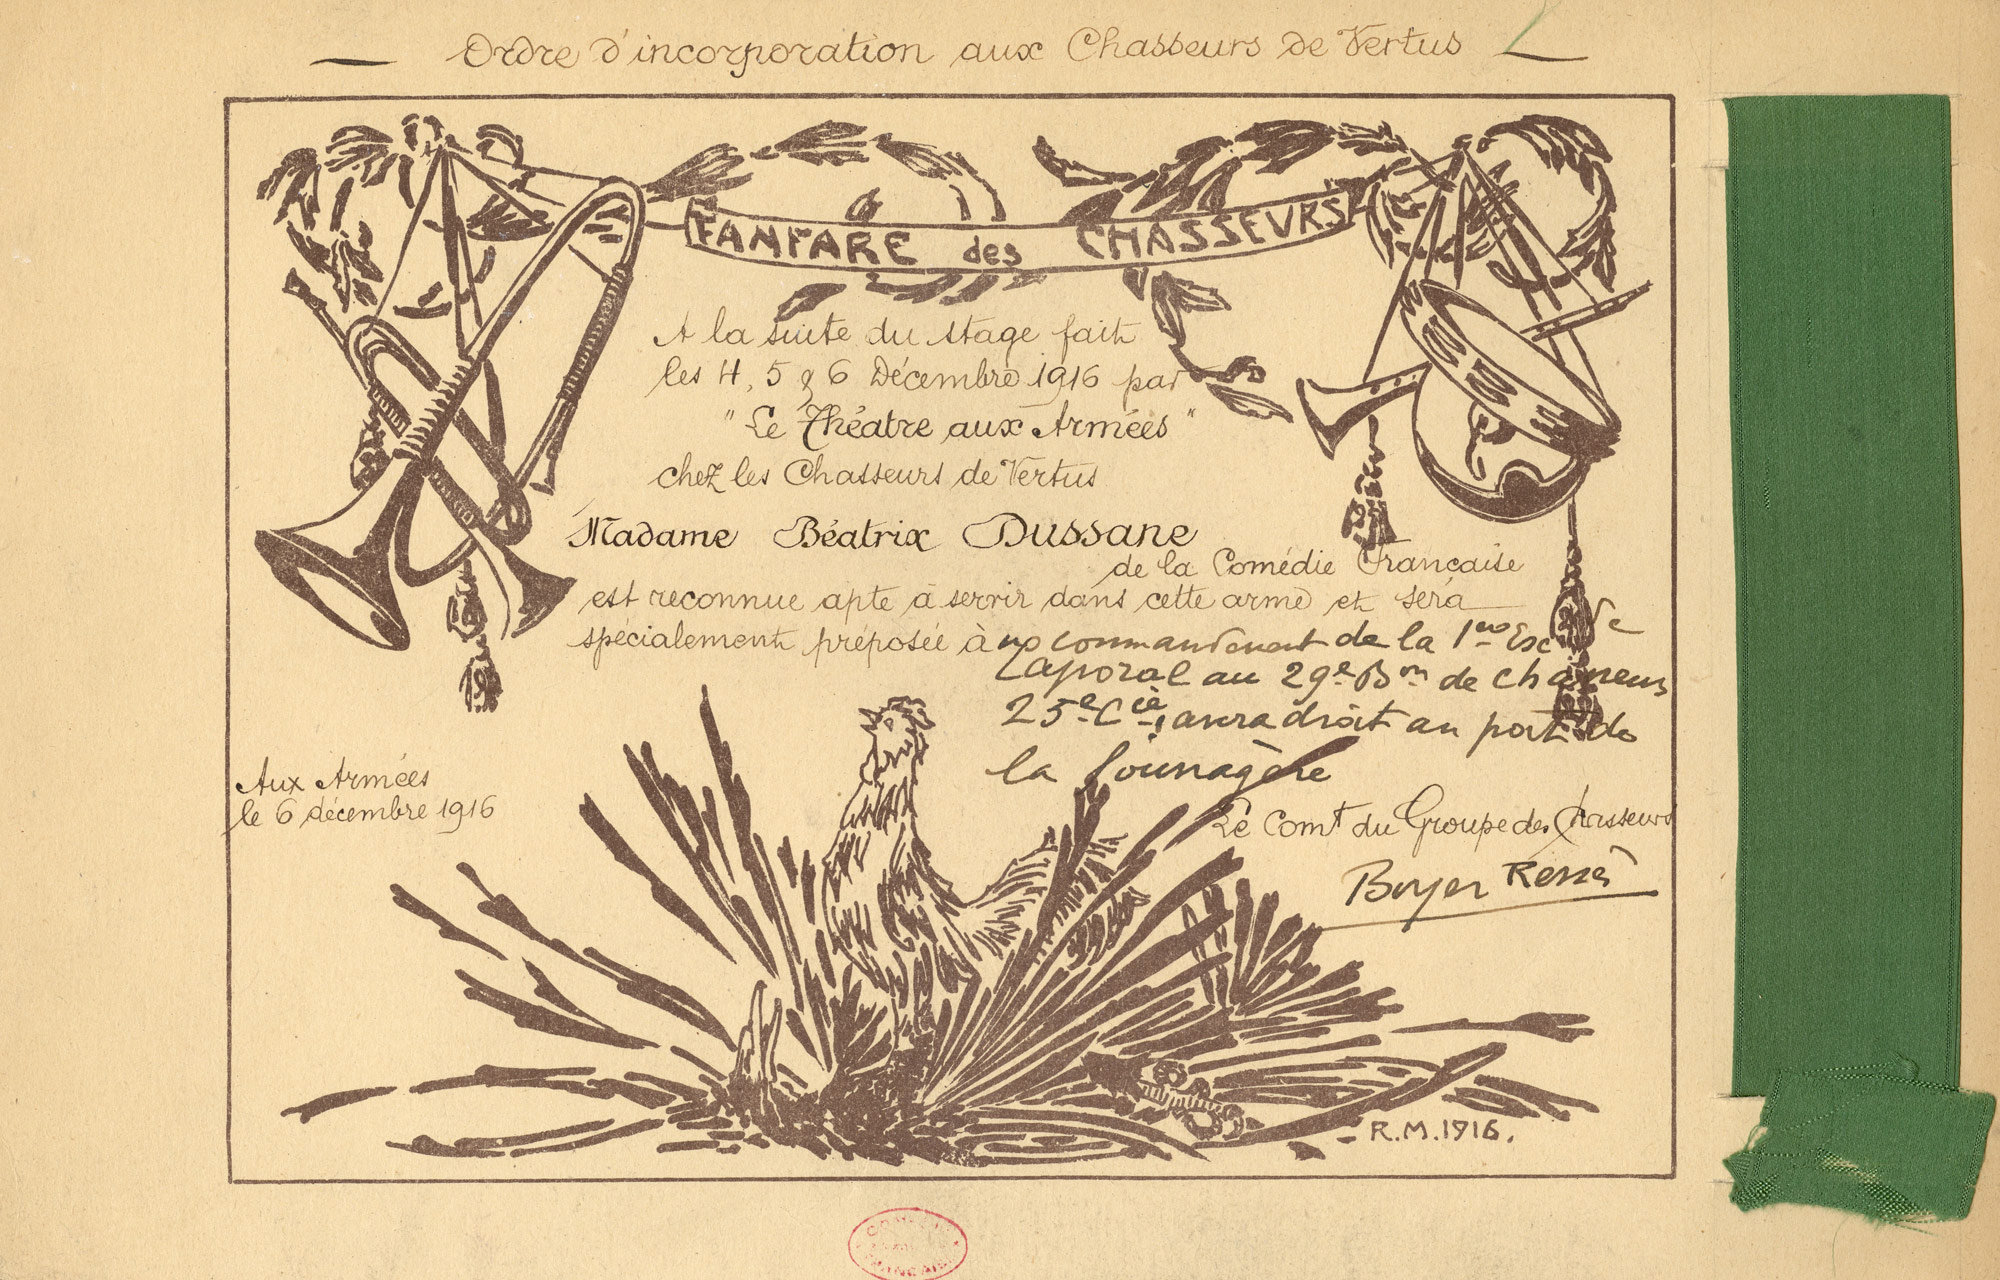 Ordre d'incorporation aux Chasseurs de Vertus
FANFARE des CHASSEVRS
A la suite du stage fait
les 4, 5 & 6 Décembre 1916 par
"Le Théatre aux Armées"
chez les Chasseurs de Vertus
Madame Béatrix Dussane
de la Comédie Française
est reconnue apte à servir dans cette arme et sera
spécialement préposée à commandement de la 1re Esc de
Caporal au 29e Bon de chasseurs
25e Cie, aura droit au port de
la fourragère
Aux Armées
le 6 décembre 1916
Le Comt du Groupe des Chasseurs
Boyer
R.M.1916.